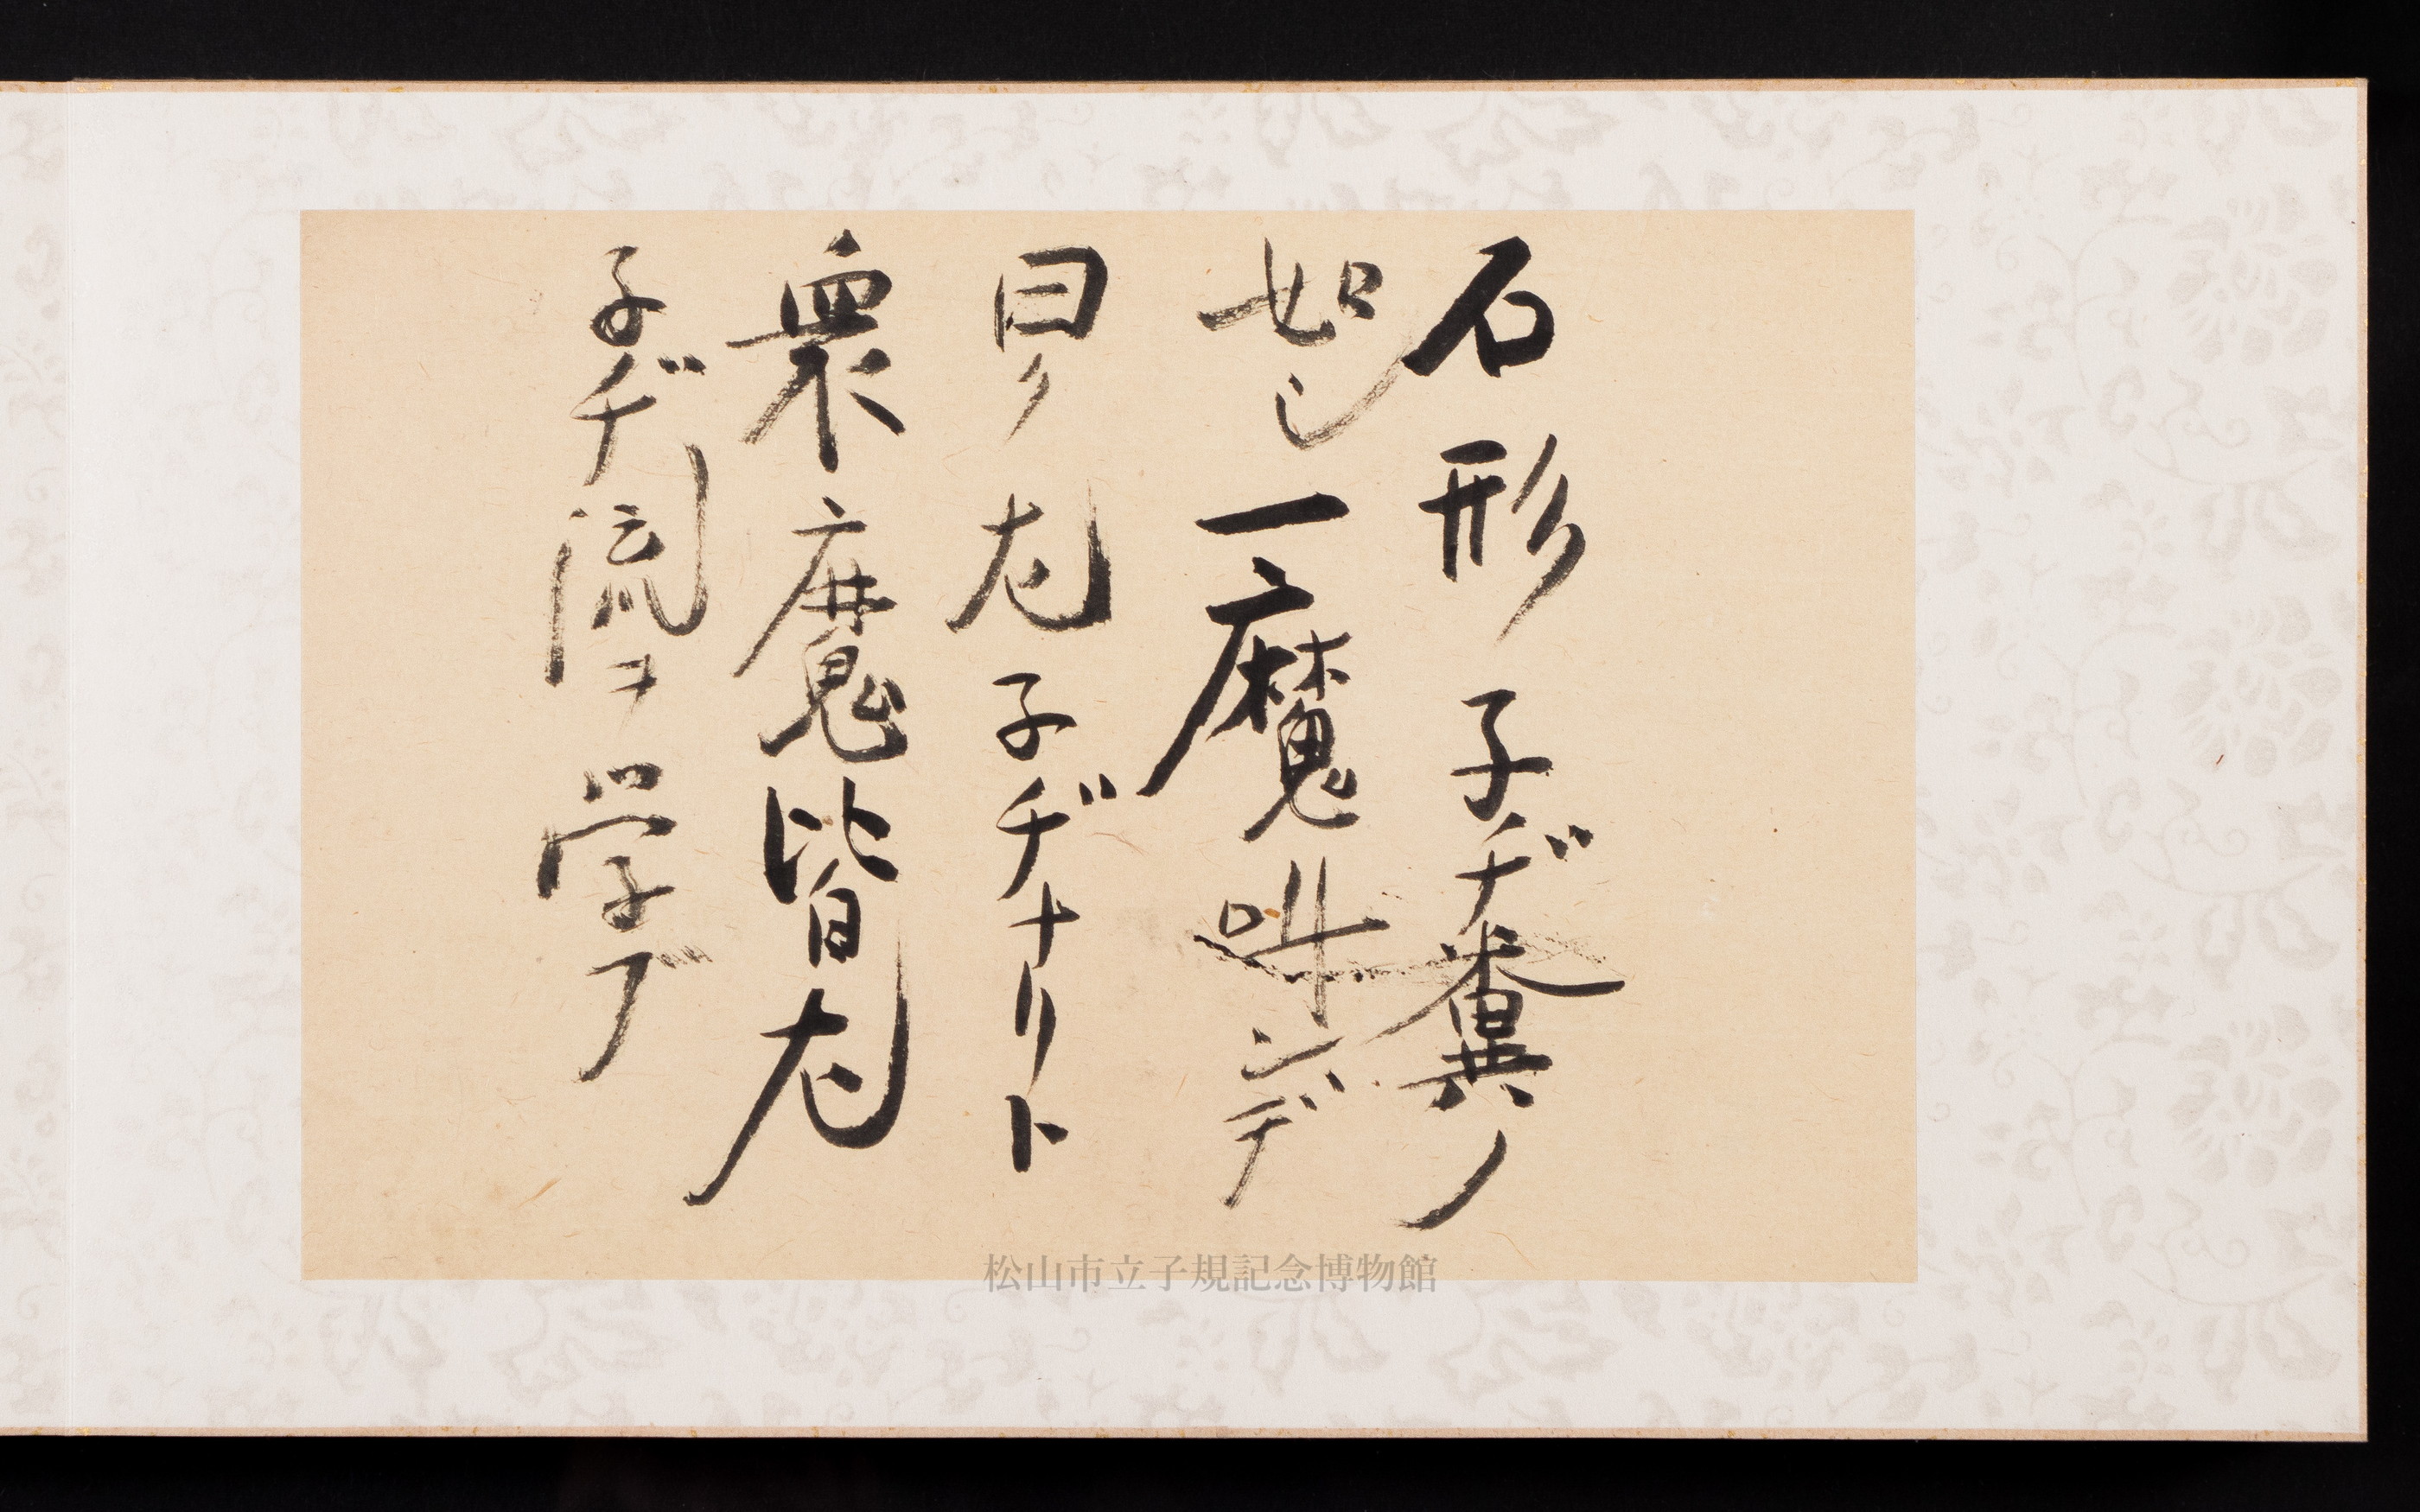 石形子ヂ糞ノ
如シ一魔叫ンデ
曰ク左子ヂナリト
衆魔皆左
子ヂ流ヲ学ブ
松山市立子規記念博物館